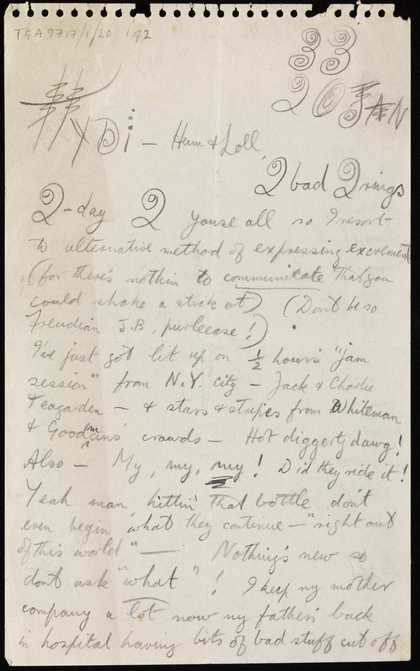 TGA 9717/1/20 1 of 2
33
20 JAN
Hum & Loll
2 bad 2 rings
2-day 2 youse all so I resort
to alternative method of expressing excrement
(for there's nothin to communicate that you
could shake a stick at) (Don't be so
Freudian J.B., purlease!)
I've just got lit up on ½ hours "jam
session" from N.Y. city – Jack & Charlie
Teagarden – & stars & stripes from Whiteman
& Goodmans' crowds – Hot diggerty dawg!
Also – My, my, my! Did they ride it!
Yeah man, hittin' that bottle don't
even begin what they continue – "right out
of this world" — Nothing's new so
don't ask "what"! I keep my mother
company a lot now my father's back
in hospital having bits of bad stuff cut off